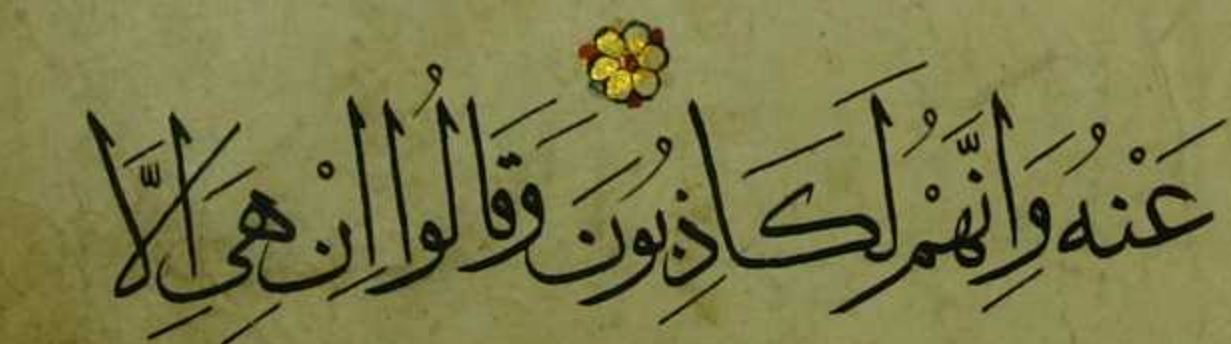 عَنْهُ وَاِنَّهُمْ لَكَاذِبُونَ وَقَالُوا اِنْ هِيَ اِلَّا